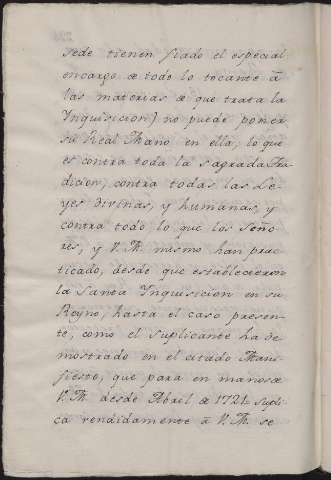 sede tienen fiado el especial
encargo de todo lo tocante â
las materias de que trata la
Ynquisicion) no puede poner
su Real Mano en ella, lo que
es contra toda la sagrada Tra-
dicion, contra todas las Le-
yes divinas, y humanas, y
contra todo lo que los Seño-
res, y V. M. mismo han prac-
ticado, desde que establecieron
la Santa Ynquisicion en su
Reyno, hasta el caso presen-
te, como el suplicante ha de-
mostrado en el citado Mani-
fiesto, que para en manos de
V. M. desde Abril de 1721. supli-
ca rendidamente â V. M. se